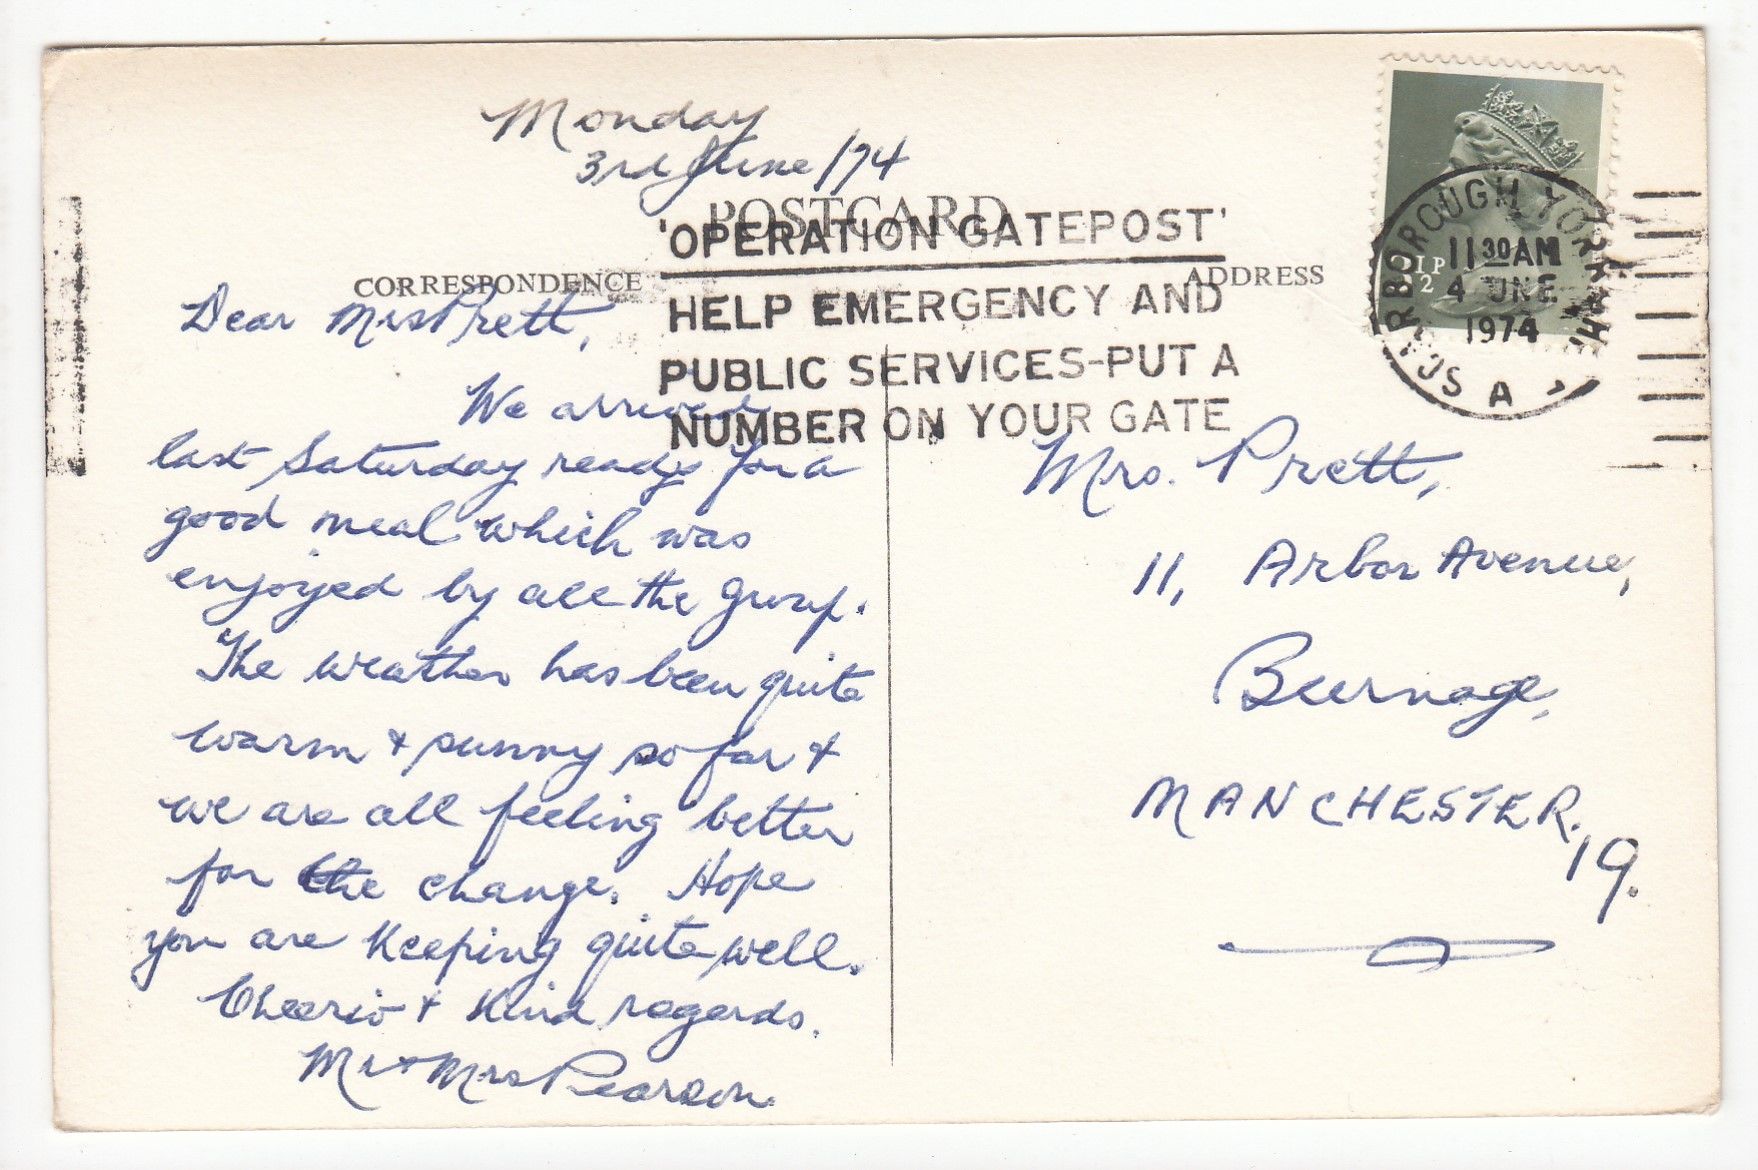 Monday
3rd June/74
POSTCARD
'OPERATION GATEPOST'
HELP EMERGENCY AND
PUBLIC SERVICES-PUT A
NUMBER ON YOUR GATE
CORRESPONDENCE
ADDRESS
SCARBOROUGH YORKSHIRE
1130AM
4 JNE
1974
A
Dear Mrs Prett,
We arrived
last Saturday ready for a
good meal which was
enjoyed by all the group.
The weather has been quite
warm & sunny so far &
we are all feeling better
for the change. Hope
you are keeping quite well.
Cheerio & Kind regards.
Mr & Mrs Pearson.
Mrs. Prett,
11, Arbor Avenue,
Burnage,
MANCHESTER.
19.